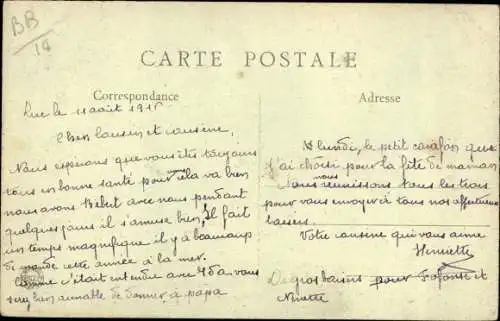 BB
18
CARTE POSTALE
Correspondance
Luc le 11 août 191
Cher cousin et cousine,
Nous espérons que vous êtes toujours
tous en bonne santé pour cela va bien
nous avons Bébert avec nous pendant
quelques jours il s'amuse bien, Il fait
un temps magnifique il y a beaucoup
de monde cette année à la mer.
comme c'était entendu avec vous
bien aimable de donner à papa
Adresse
lundi, le petit que
j'ai choisi pour la fête de maman
nous
Nous réunissons tous les trois
pour vous envoyer à tous nos affectueux
baisers.
Votre cousine qui vous aime
Henriette
De gros baisers pour et
Ninette